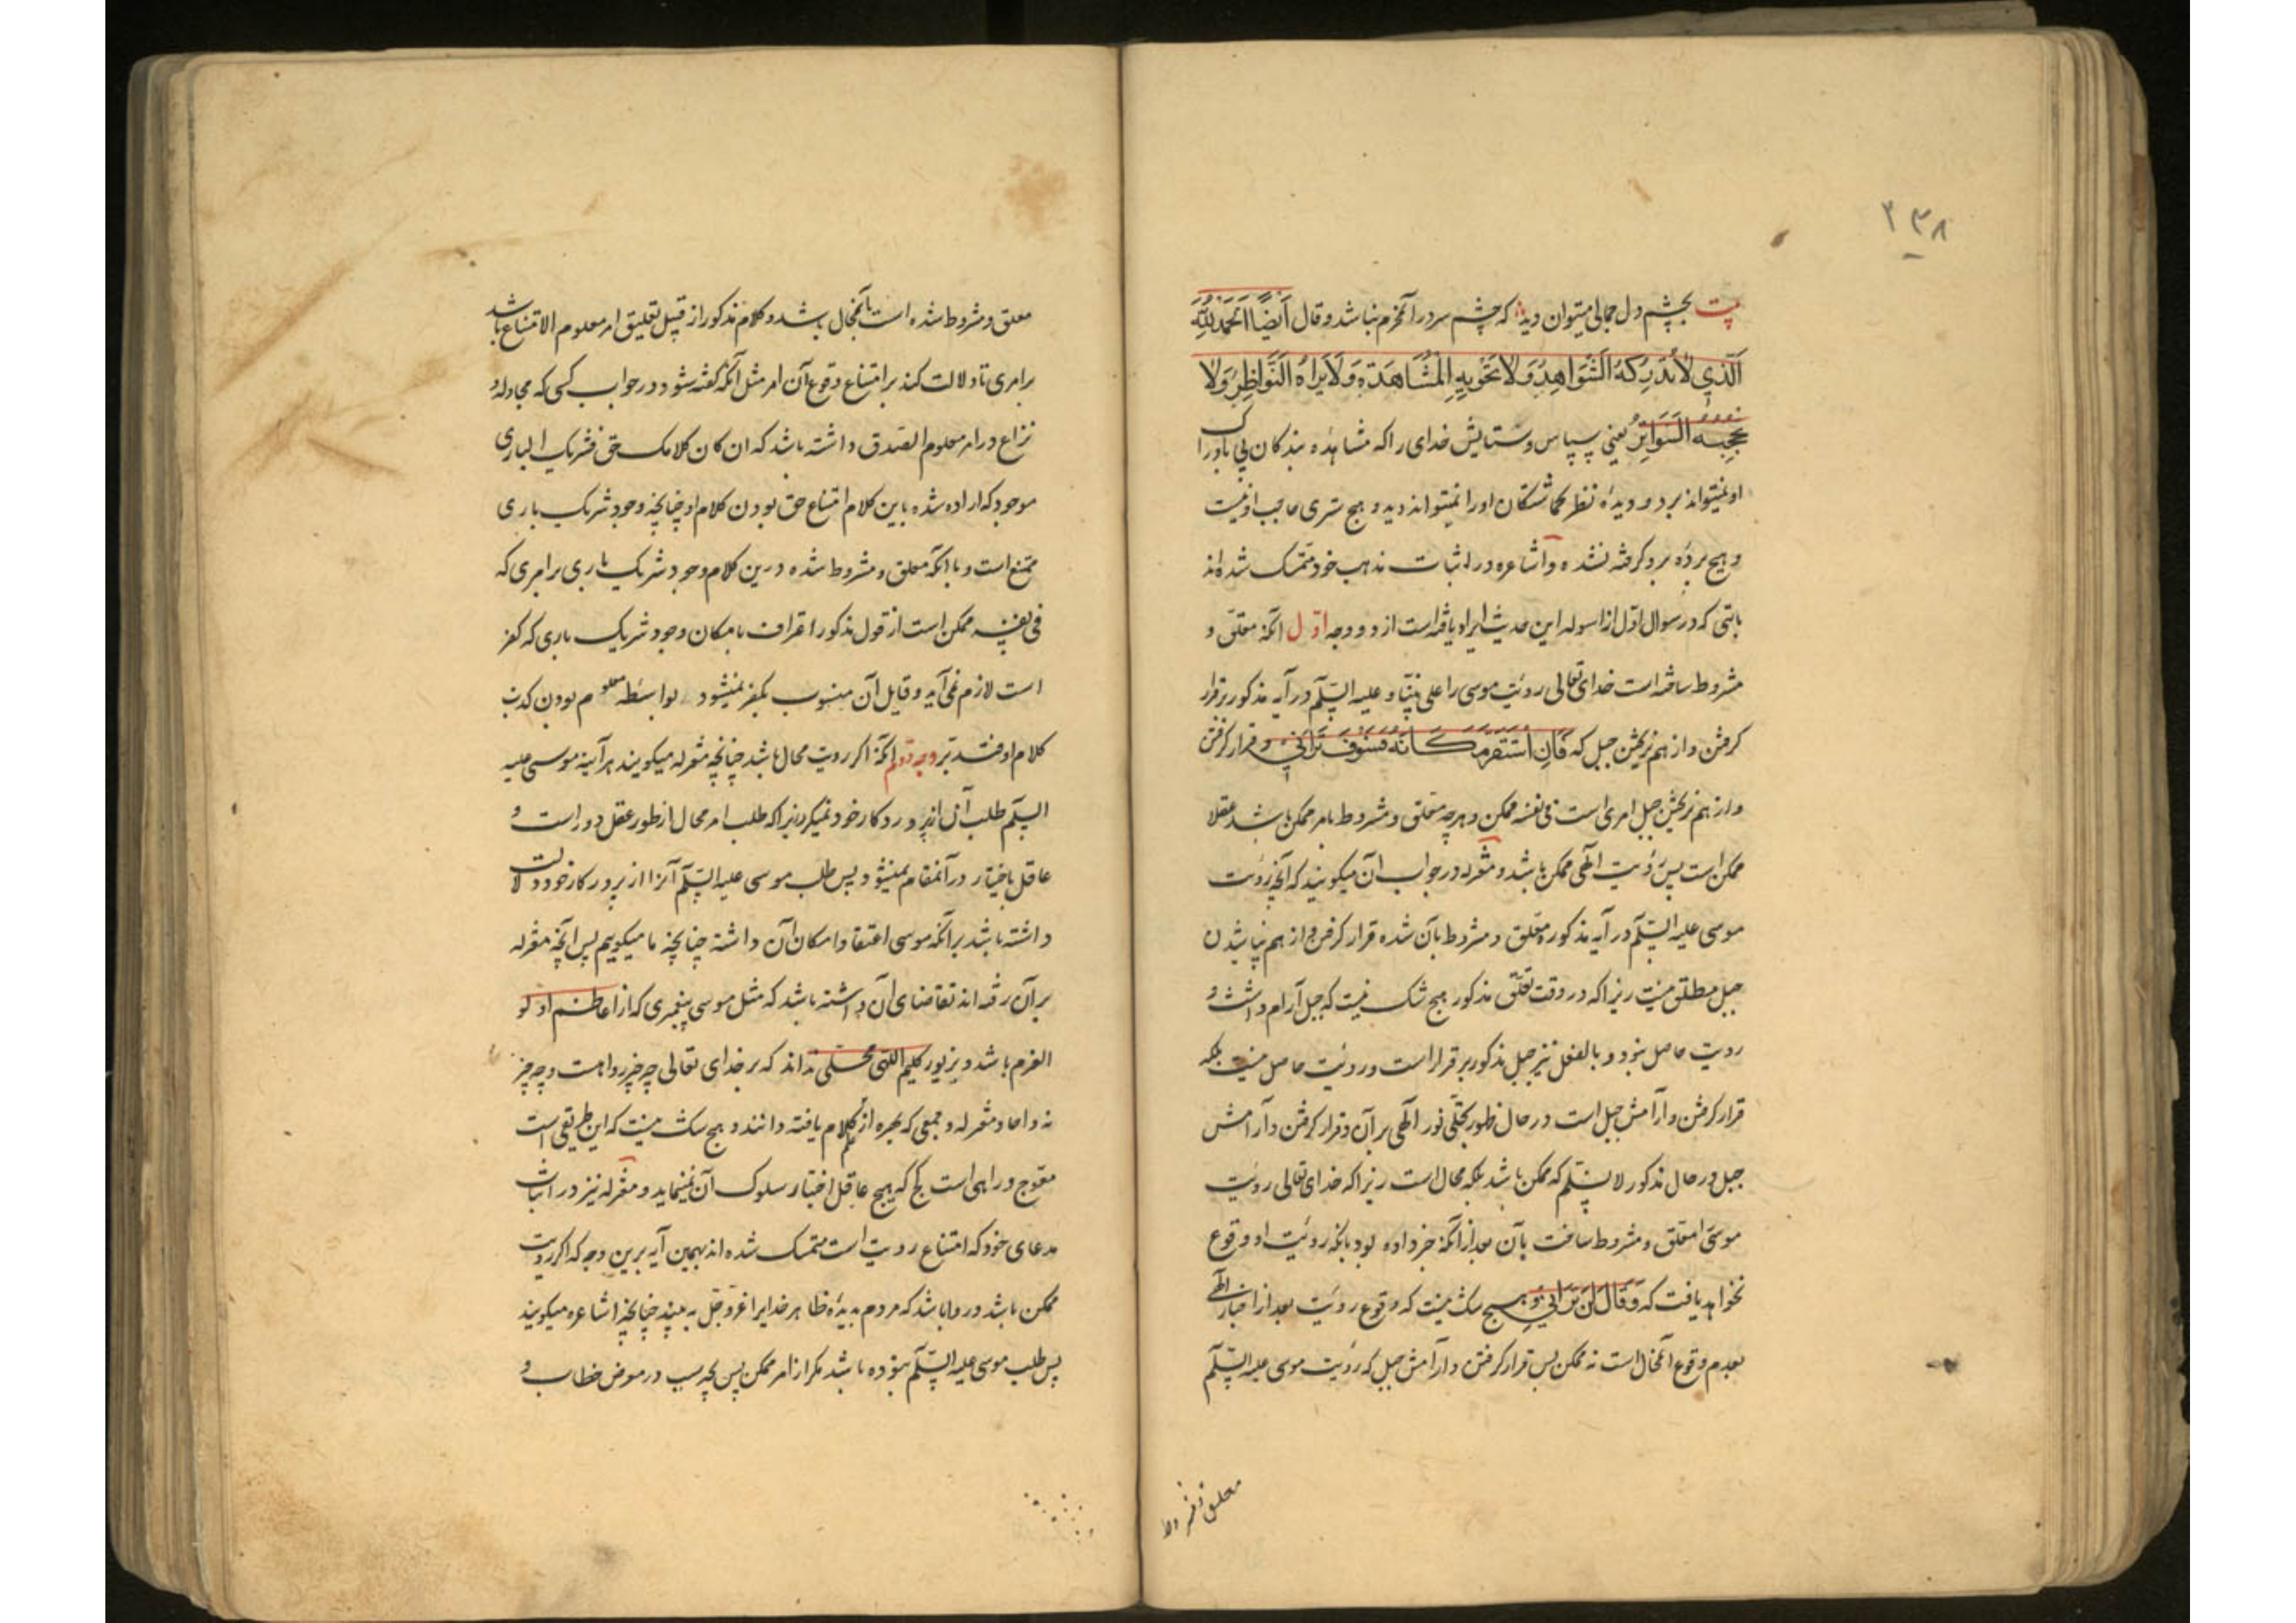 ۲۳۸
بیت بچشم دل جمالی میتوان دید که چشم سر در آن محرم نباشد وقال ایضا الحمد لله
الَّذِي لَا تُدْرِكُهُ الشَّوَاهِدُ وَلَا تَحْوِيهِ الْمَشَاهَدَةِ وَلَا يَرَاهُ النَّوَاظِرُ وَلَا
السَّوَاتِرُ یعنی سپاس وستایش خدای را که مشاهده بندکان پی
او نمیتواند برد و دیده نظر او را نمیتواند دید و هیچ ستری حاجب او نیست
و هیچ پرده برو گرفته نشده و اشاعره در اثبات مذهب خود متمسک شده‌اند
که در سوال اول از اسوله این حدیث ایراد یافته است از دو وجه اول آنکه معلق و
مشروط ساخته است خدای تعالی رویت موسی را علی نبینا و علیه السلم در آیه مذکور بر قرار
کرفتن و از هم نریختن جبل که فَإِنِ اسْتَقَرَّ مَكَانَهُ فَسَوْفَ تَرَانِي و قرار کرفتن
و از هم نریختن جبل امری است فی نفسه ممکن و هرچه معلق و مشروط بامر ممکن باشد عقلا
ممکن است پس رویت الهی ممکن باشد و معتزله در جواب آن میکویند که آنچه رویت
موسی علیه السلم در آیه مذکوره معلق و مشروط بآن شده قرار کرفتن و از هم نپاشیدن
جبل مطلق نیست زیرا که در وقت تعلق مذکور هیچ شک نیست که جبل آرام داشت و
رویت حاصل نبود و بالفعل نیز جبل مذکور بر قرار است و رویت حاصل نیست بلکه
قرار کرفتن و آرامش جبل است در حال ظهور تجلی نور الهی بر آن و قرار کرفتن و آرامش
جبل در حال مذکور لا نسلم که ممکن باشد بلکه محال است زیرا که خدای تعالی رویت
موسی را معلق و مشروط ساخت بآن بعد از آنکه خبر داده بود بانکه رویت او وقوع
نخواهد یافت که وَقَالَ لَنْ تَرَانِي و هیچ شک نیست که وقوع رویت بعد از اخبار الهی
بعدم وقوع آن محال است نه ممکن پس قرار کرفتن و آرامش جبل که رویت موسی علیه السلم
معلق
معلق و مشروط شده است بآن محال باشد و کلام مذکور از قبیل تعلیق امر معلوم الامتناع باشد
بر امری تا دلالت کند بر امتناع وقوع آن امر مثل آنکه کفته شود در جواب کسی که مجادله و
نزاع در امر معلوم الصدق داشته باشد که ان کان کلامک حق فشریک الباری
موجود که اراده شده باین کلام امتناع حق بودن کلام او چنانچه وجود شریک باری
ممتنع است و بانکه معلق و مشروط شده درین کلام وجود شریک باری بر امری که
فی نفسه ممکن است از قول مذکور اعتراف بامکان وجود شریک باری که کفر
است لازم نمی‌آید و قایل آن منسوب بکفر نمیشود بواسطه معلوم بودن کذب
کلام او فتدبر وجه دوم آنکه اکر رویت محال باشد چنانچه معتزله میکویند هر آینه موسی علیه
السلم طلب آن از پروردکار خود نمیکرد زیرا که طلب امر محال از طور عقل دور است و
عاقل باختیار در آنمقام نمیشود پس طلب موسی علیه السلم آنرا از پروردکار خود دلالت
داشته باشد بر آنکه موسی اعتقاد امکان آن داشته چنانچه ما میکوییم پس آنچه معتزله
بر آن رفته اند تقاضای آن داشته باشد که مثل موسی پیغمبری که از اعاظم اولو
العزم باشد و بزیور کلیم اللهی محلی نداند که بر خدای تعالی چه چیز رواست و چه چیز
نه و احاد معتزله و جمعی که بهره از علم کلام یافته دانند و هیچ شک نیست که این طریقی است
معوج و راهی است کج که هیچ عاقل اختیار سلوک آن نمینماید و معتزله نیز در اثبات
مدعای خود که امتناع رویت است متمسک شده اند بهمین آیه برین وجه که اکر رویت
ممکن باشد و روا باشد که مردم بدیده ظاهر خدایرا عز و جل به بینند چنانچه اشاعره میکویند
پس طلب موسی علیه السلم نبوده باشد مکر از امر ممکن پس بچه سبب در معرض خطاب و